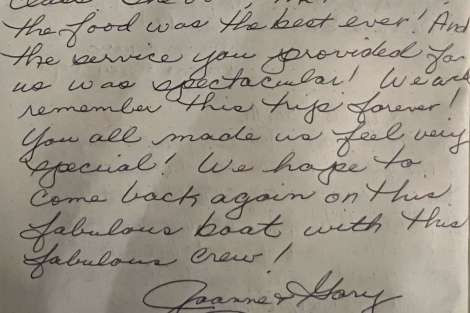 the food was the best ever! And
the service you provided for
us was spectacular! We
remember this trip forever!
You all made us feel very
special! We hope to
come back again on this
fabulous boat with this
fabulous crew!
Joanne & Gary